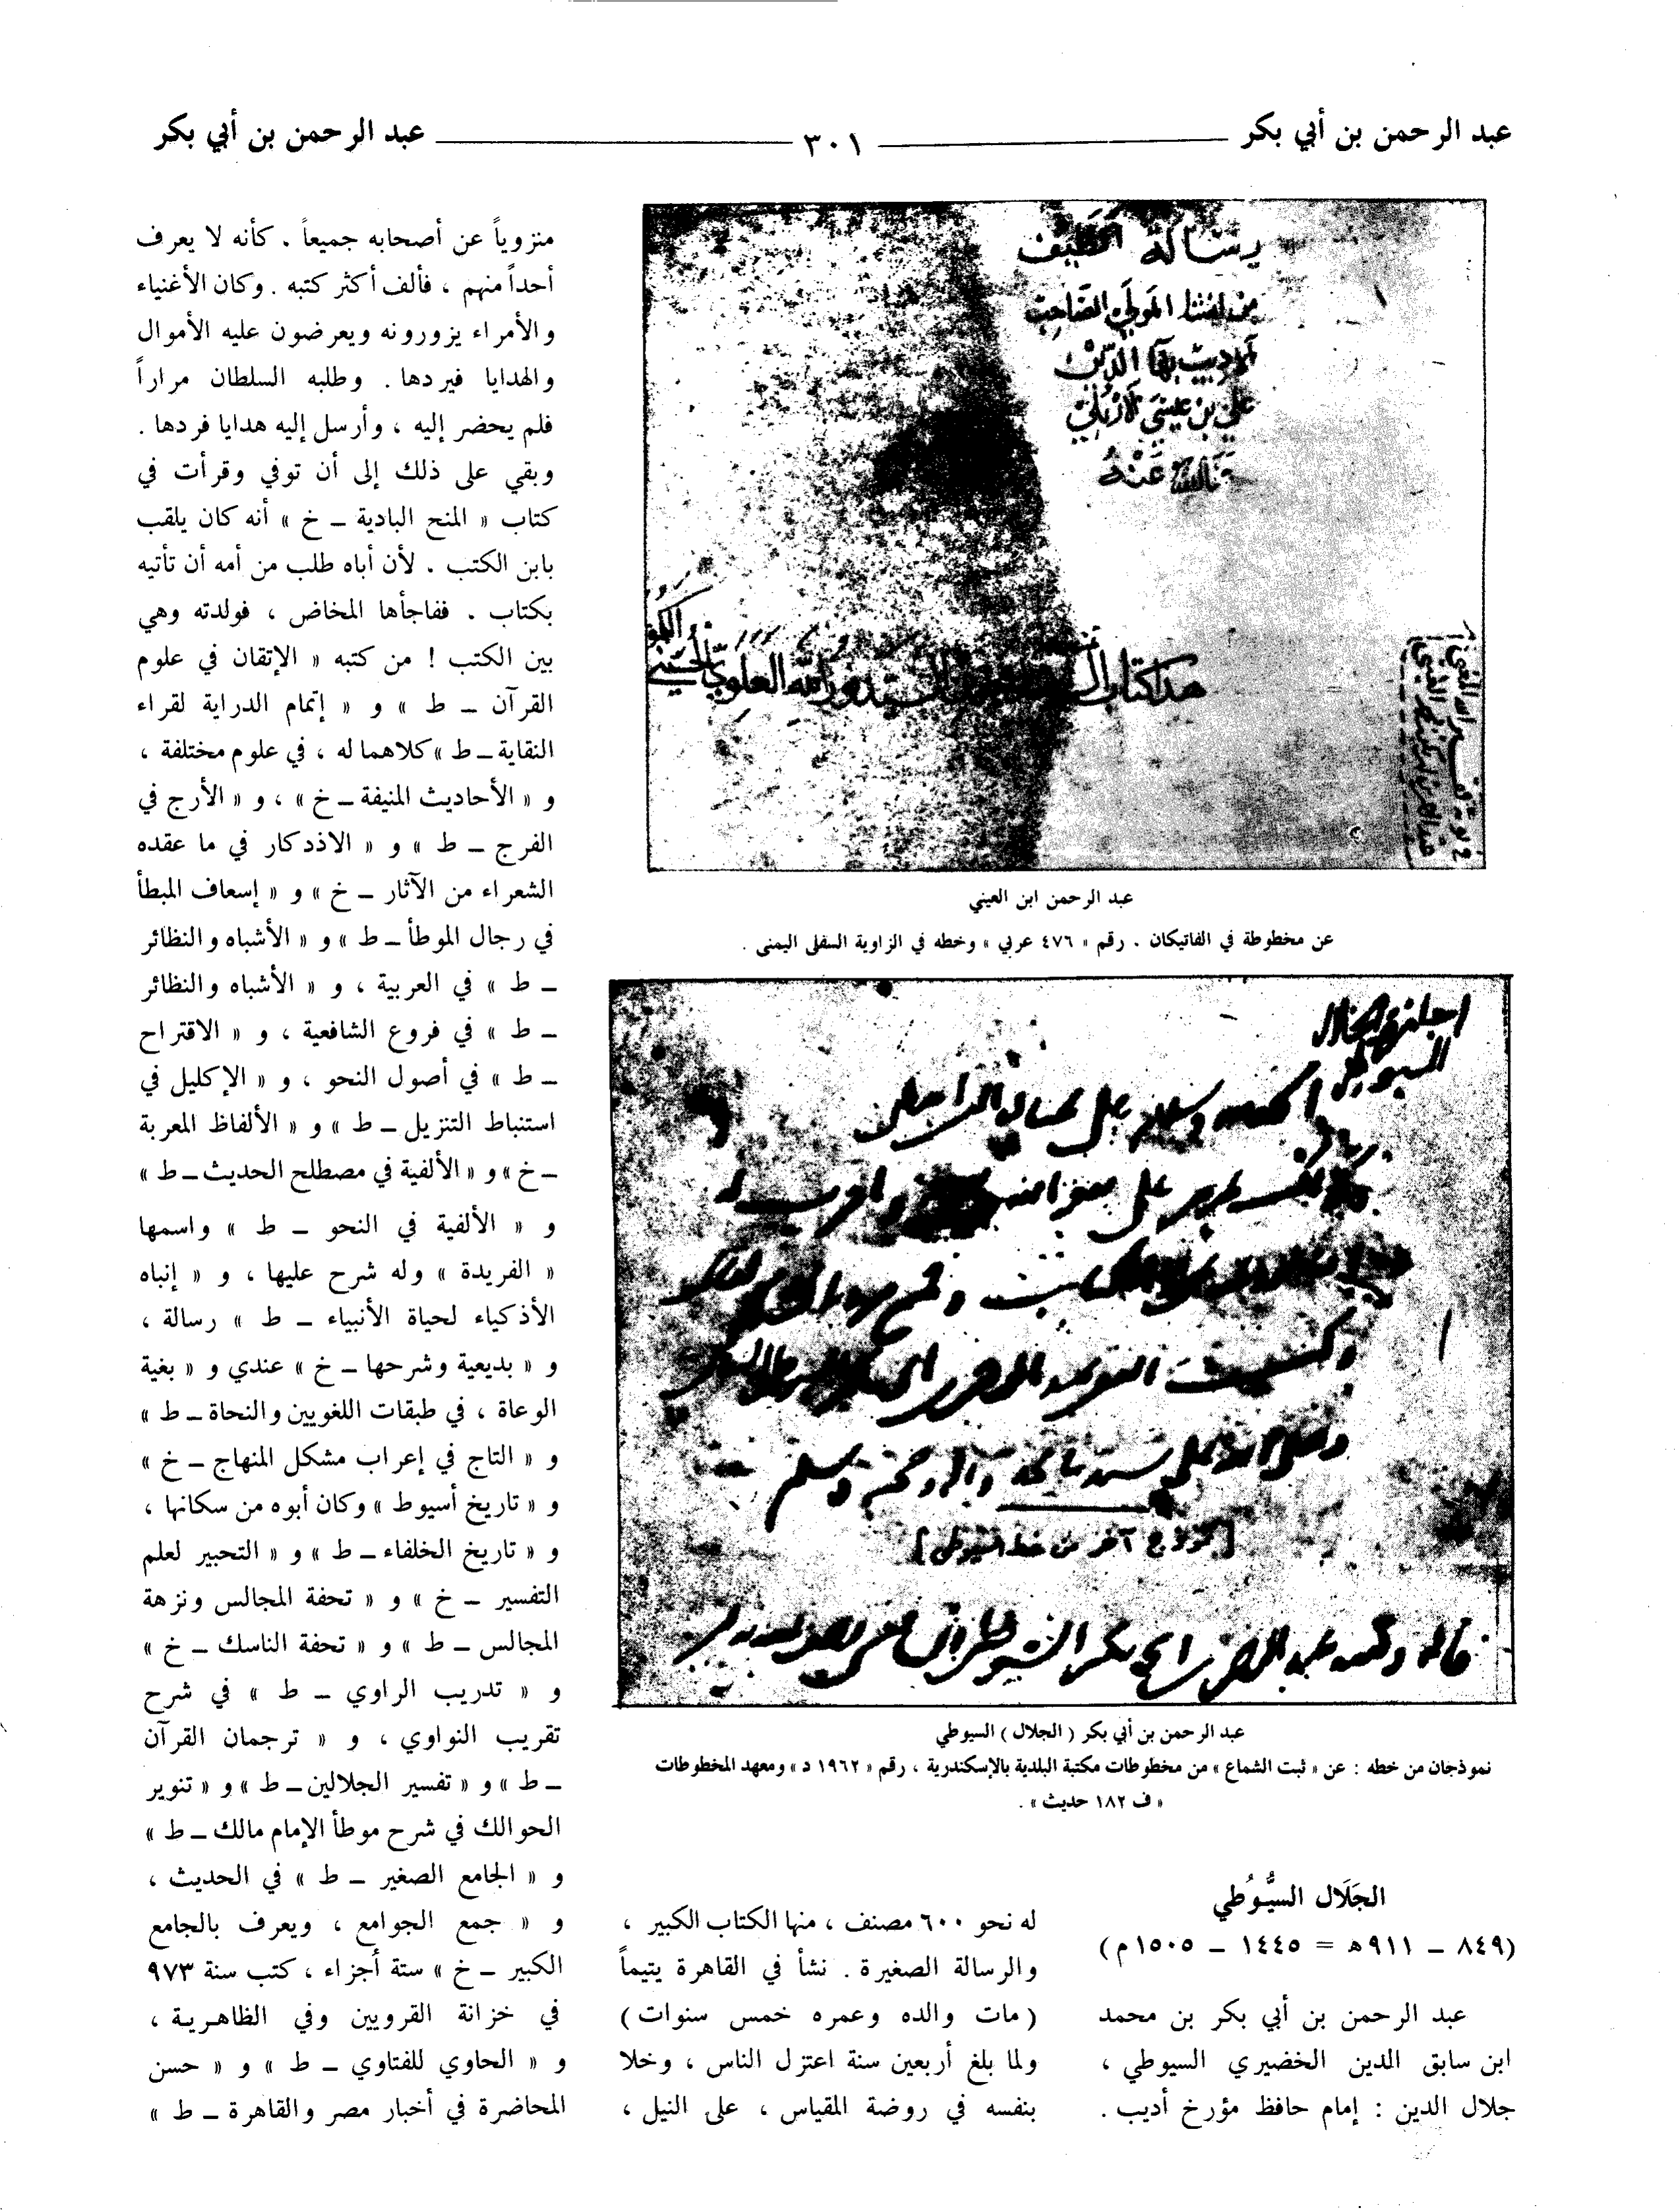 عبد الرحمن بن أبي بكر
٣٠١
عبد الرحمن بن أبي بكر
رسالة الطيف
علي بن عيسى الإربلي
هذا كتاب
عبد الرحمن ابن العيني
عن مخطوطة في الفاتيكان . رقم « ٤٧٦ عربي » وخطه في الزاوية السفلى اليمنى .
السيوطي
[نموذج آخر من خط السيوطي]
عبد الرحمن بن أبي بكر ( الجلال ) السيوطي
نموذجان من خطه : عن « ثبت الشماع » من مخطوطات مكتبة البلدية بالإسكندرية ، رقم « ١٩٦٢ د » ومعهد المخطوطات
« ف ١٨٢ حديث » .
الجَلَال السيُّوُطي
(٨٤٩ – ٩١١ هـ = ١٤٤٥ – ١٥٠٥ م)
عبد الرحمن بن أبي بكر بن محمد
ابن سابق الدين الخضيري السيوطي ،
جلال الدين : إمام حافظ مؤرخ أديب .
له نحو ٦٠٠ مصنف ، منها الكتاب الكبير ،
والرسالة الصغيرة . نشأ في القاهرة يتيماً
( مات والده وعمره خمس سنوات )
ولما بلغ أربعين سنة اعتزل الناس ، وخلا
بنفسه في روضة المقياس ، على النيل ،
منزوياً عن أصحابه جميعاً . كأنه لا يعرف
أحداً منهم ، فألف أكثر كتبه . وكان الأغنياء
والأمراء يزورونه ويعرضون عليه الأموال
والهدايا فيردها . وطلبه السلطان مراراً
فلم يحضر إليه ، وأرسل إليه هدايا فردها .
وبقي على ذلك إلى أن توفي وقرأت في
كتاب « المنح البادية – خ » أنه كان يلقب
بابن الكتب . لأن أباه طلب من أمه أن تأتيه
بكتاب . ففاجأها المخاض ، فولدته وهي
بين الكتب ! من كتبه « الإتقان في علوم
القرآن – ط » و « إتمام الدراية لقراء
النقاية – ط » كلاهما له ، في علوم مختلفة ،
و « الأحاديث المنيفة – خ » ، و « الأرج في
الفرج – ط » و « الاذدكار في ما عقده
الشعراء من الآثار – خ » و « إسعاف المبطأ
في رجال الموطأ – ط » و « الأشباه والنظائر
– ط » في العربية ، و « الأشباه والنظائر
– ط » في فروع الشافعية ، و « الاقتراح
– ط » في أصول النحو ، و « الإكليل في
استنباط التنزيل – ط » و « الألفاظ المعربة
– خ » و « الألفية في مصطلح الحديث – ط »
و « الألفية في النحو – ط » واسمها
« الفريدة » وله شرح عليها ، و « إنباه
الأذكياء لحياة الأنبياء – ط » رسالة ،
و « بديعية وشرحها – خ » عندي و « بغية
الوعاة ، في طبقات اللغويين والنحاة – ط »
و « التاج في إعراب مشكل المنهاج – خ »
و « تاريخ أسيوط » وكان أبوه من سكانها ،
و « تاريخ الخلفاء – ط » و « التحبير لعلم
التفسير – خ » و « تحفة المجالس ونزهة
المجالس – ط » و « تحفة الناسك – خ »
و « تدريب الراوي – ط » في شرح
تقريب النواوي ، و « ترجمان القرآن
– ط » و « تفسير الجلالين – ط » و « تنوير
الحوالك في شرح موطأ الإمام مالك – ط »
و « الجامع الصغير – ط » في الحديث ،
و « جمع الجوامع ، ويعرف بالجامع
الكبير – خ » ستة أجزاء ، كتب سنة ٩٧٣
في خزانة القرويين وفي الظاهرية ،
و « الحاوي للفتاوي – ط » و « حسن
المحاضرة في أخبار مصر والقاهرة – ط »